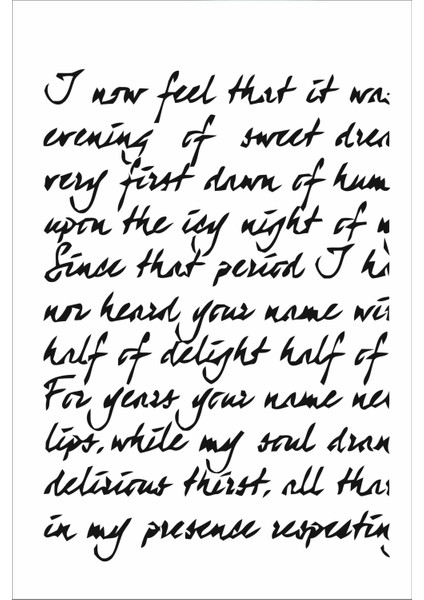 I now feel that it was
evening of sweet drea
very first dawn of hum
upon the icy night of
Since that period I ha
nor heard your name wi
half of delight half of
For years your name ne
lips, while my soul dran
delirious thirst, all tha
in my presence respectin